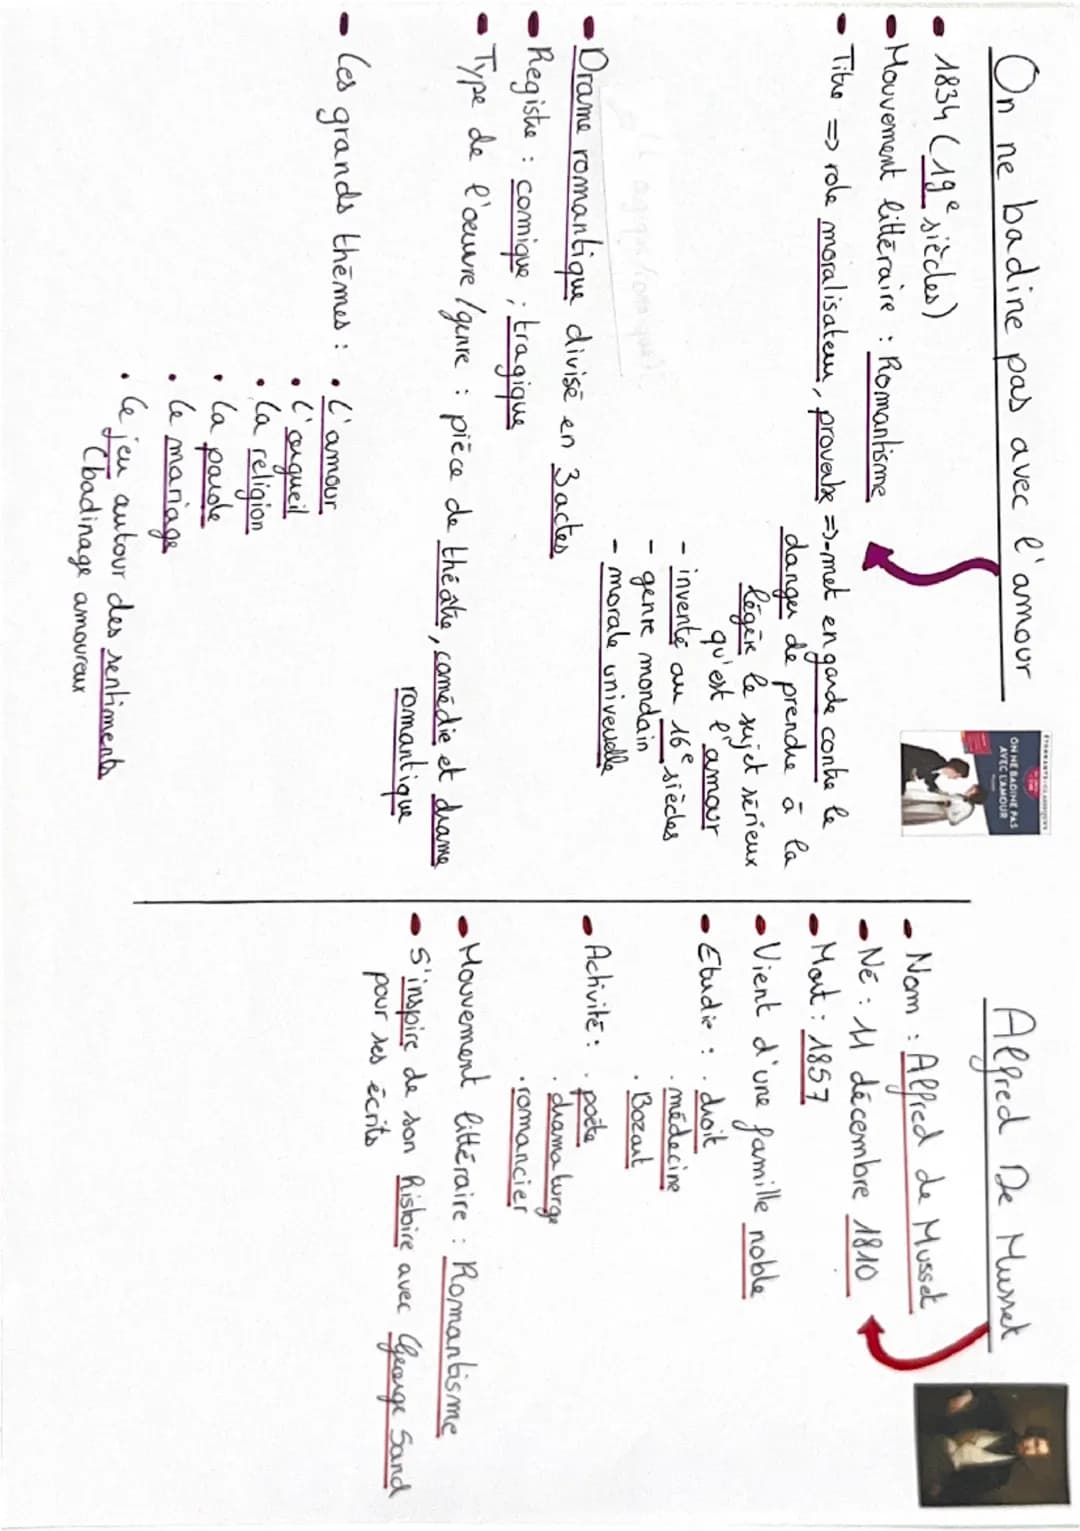 On ne badine pas avec l'amour
• 1834 (19e siècles)
• Mouvement littéraire : Romantisme
• Titre => role moralisateur, proverbe => - met en garde contre le
danger de prendre à la
légère le sujet sérieux
qu'est l'amour
- inventé au 16e siècles
- genre mondain
- morale universelle
• Drame romantique divisé en 3 actes
• Registre : comique ; tragique
• Type de l'œuvre / genre : pièce de théâtre, comédie et drame
romantique
• Les grands thèmes : • L'amour
• L'orgueil
• La religion
• La parole
• Le mariage
• Le jeu autour des sentiments
(badinage amoureux
ÉTONNANTS•CLASSIQUES
ON NE BADINE PAS
AVEC L'AMOUR
Alfred De Musset
• Nom : Alfred de Musset
• Né : 11 décembre 1810
• Mort : 1857
• Vient d'une famille noble
• Etudie : . droit
. médecine
. Bozart
• Activité : . poète
. dramaturge
. romancier
• Mouvement littéraire : Romantisme
• S'inspire de son histoire avec George Sand
pour ses écrits